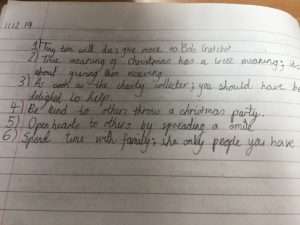 11.12.19
1) Tiny tim will die; give more to Bob Cratchit
2) True meaning of christmas has a true meaning; it's
about giving than receiving
3) As soon as the charity collector; you should have be
delight to help.
4) Be kind to others throw a christmas party.
5) Open hearts to others by spreading a smile
6) Spend time with family; the only people you have